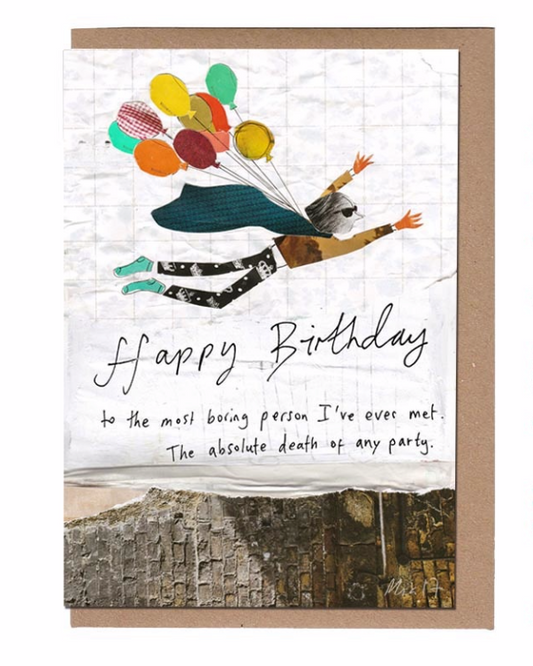 Happy Birthday
to the most boring person I've ever met.
The absolute death of any party.